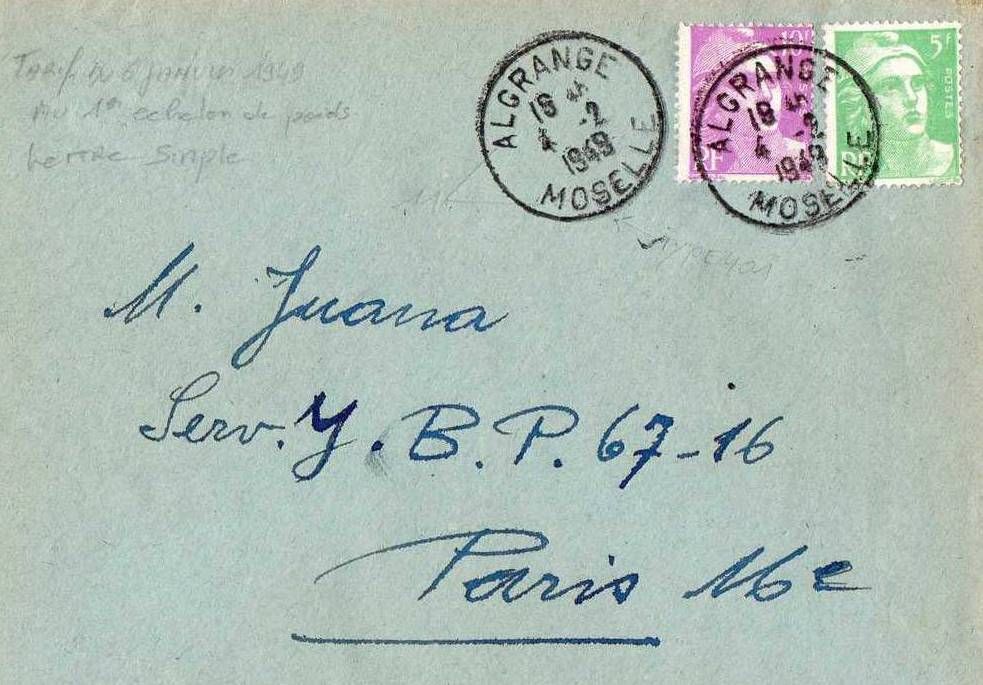 Tarif du 6 Janvier 1949
Au 1er echelon de poids
Lettre Simple
ALGRANGE
18 45
4 -2
1949
MOSELLE
10F
RF
ALGRANGE
18 45
4 -2
1949
MOSELLE
5F
POSTES
M. Juana
Serv. Y. B.P. 67-16
Paris 16e